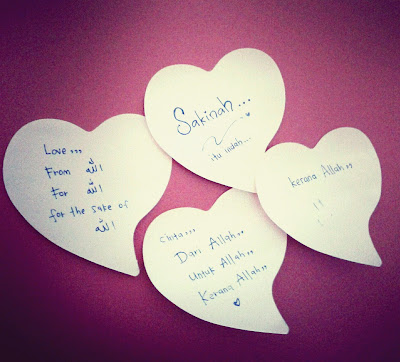 Love,,,
From الله
For الله
for the sake of
الله
Sakinah...
itu indah...
kerana Allah,,
!!
Cinta...
Dari Allah,,
Untuk Allah,,
Kerana Allah,,